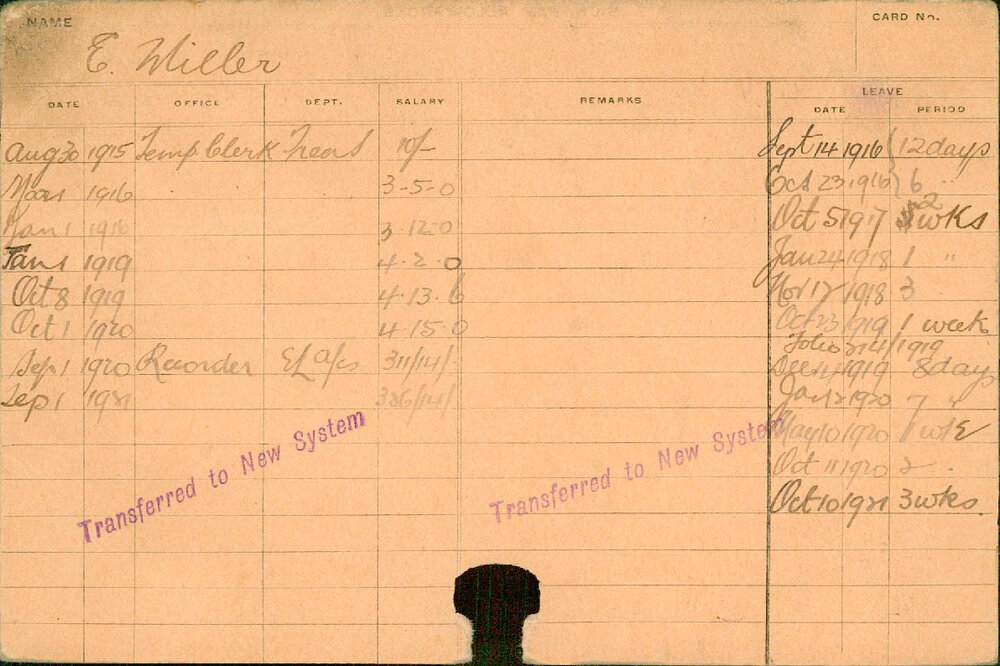 NAME
CARD No.
E. Miller
DATE OFFICE DEPT. SALARY REMARKS LEAVE
DATE PERIOD
Aug 30 1915 Temp. Clerk Treas 10/-
Mar 1 1916 3-5-0
Jan 1 1918 3-12-0
Jan 1 1919 4-2-0
Oct 8 1919 4-13-6
Oct 1 1920 4-15-0
Sep 1 1920 Recorder EL a/cs 311/14/-
Sep 1 1921 386/14/
Sept 14 1916 12 days
Oct 23 1916 6 "
Oct 5 1917 2 wks
Jan 24 1918 1 "
Nov 12 1918 3
Oct 23 1919 1 week
Folio 214/1919
Dec 1919 8 days
Jan 2 1920 7 "
May 10 1920 1 wk
Oct 11 1920 2 "
Oct 10 1921 3 wks.
Transferred to New System
Transferred to New System